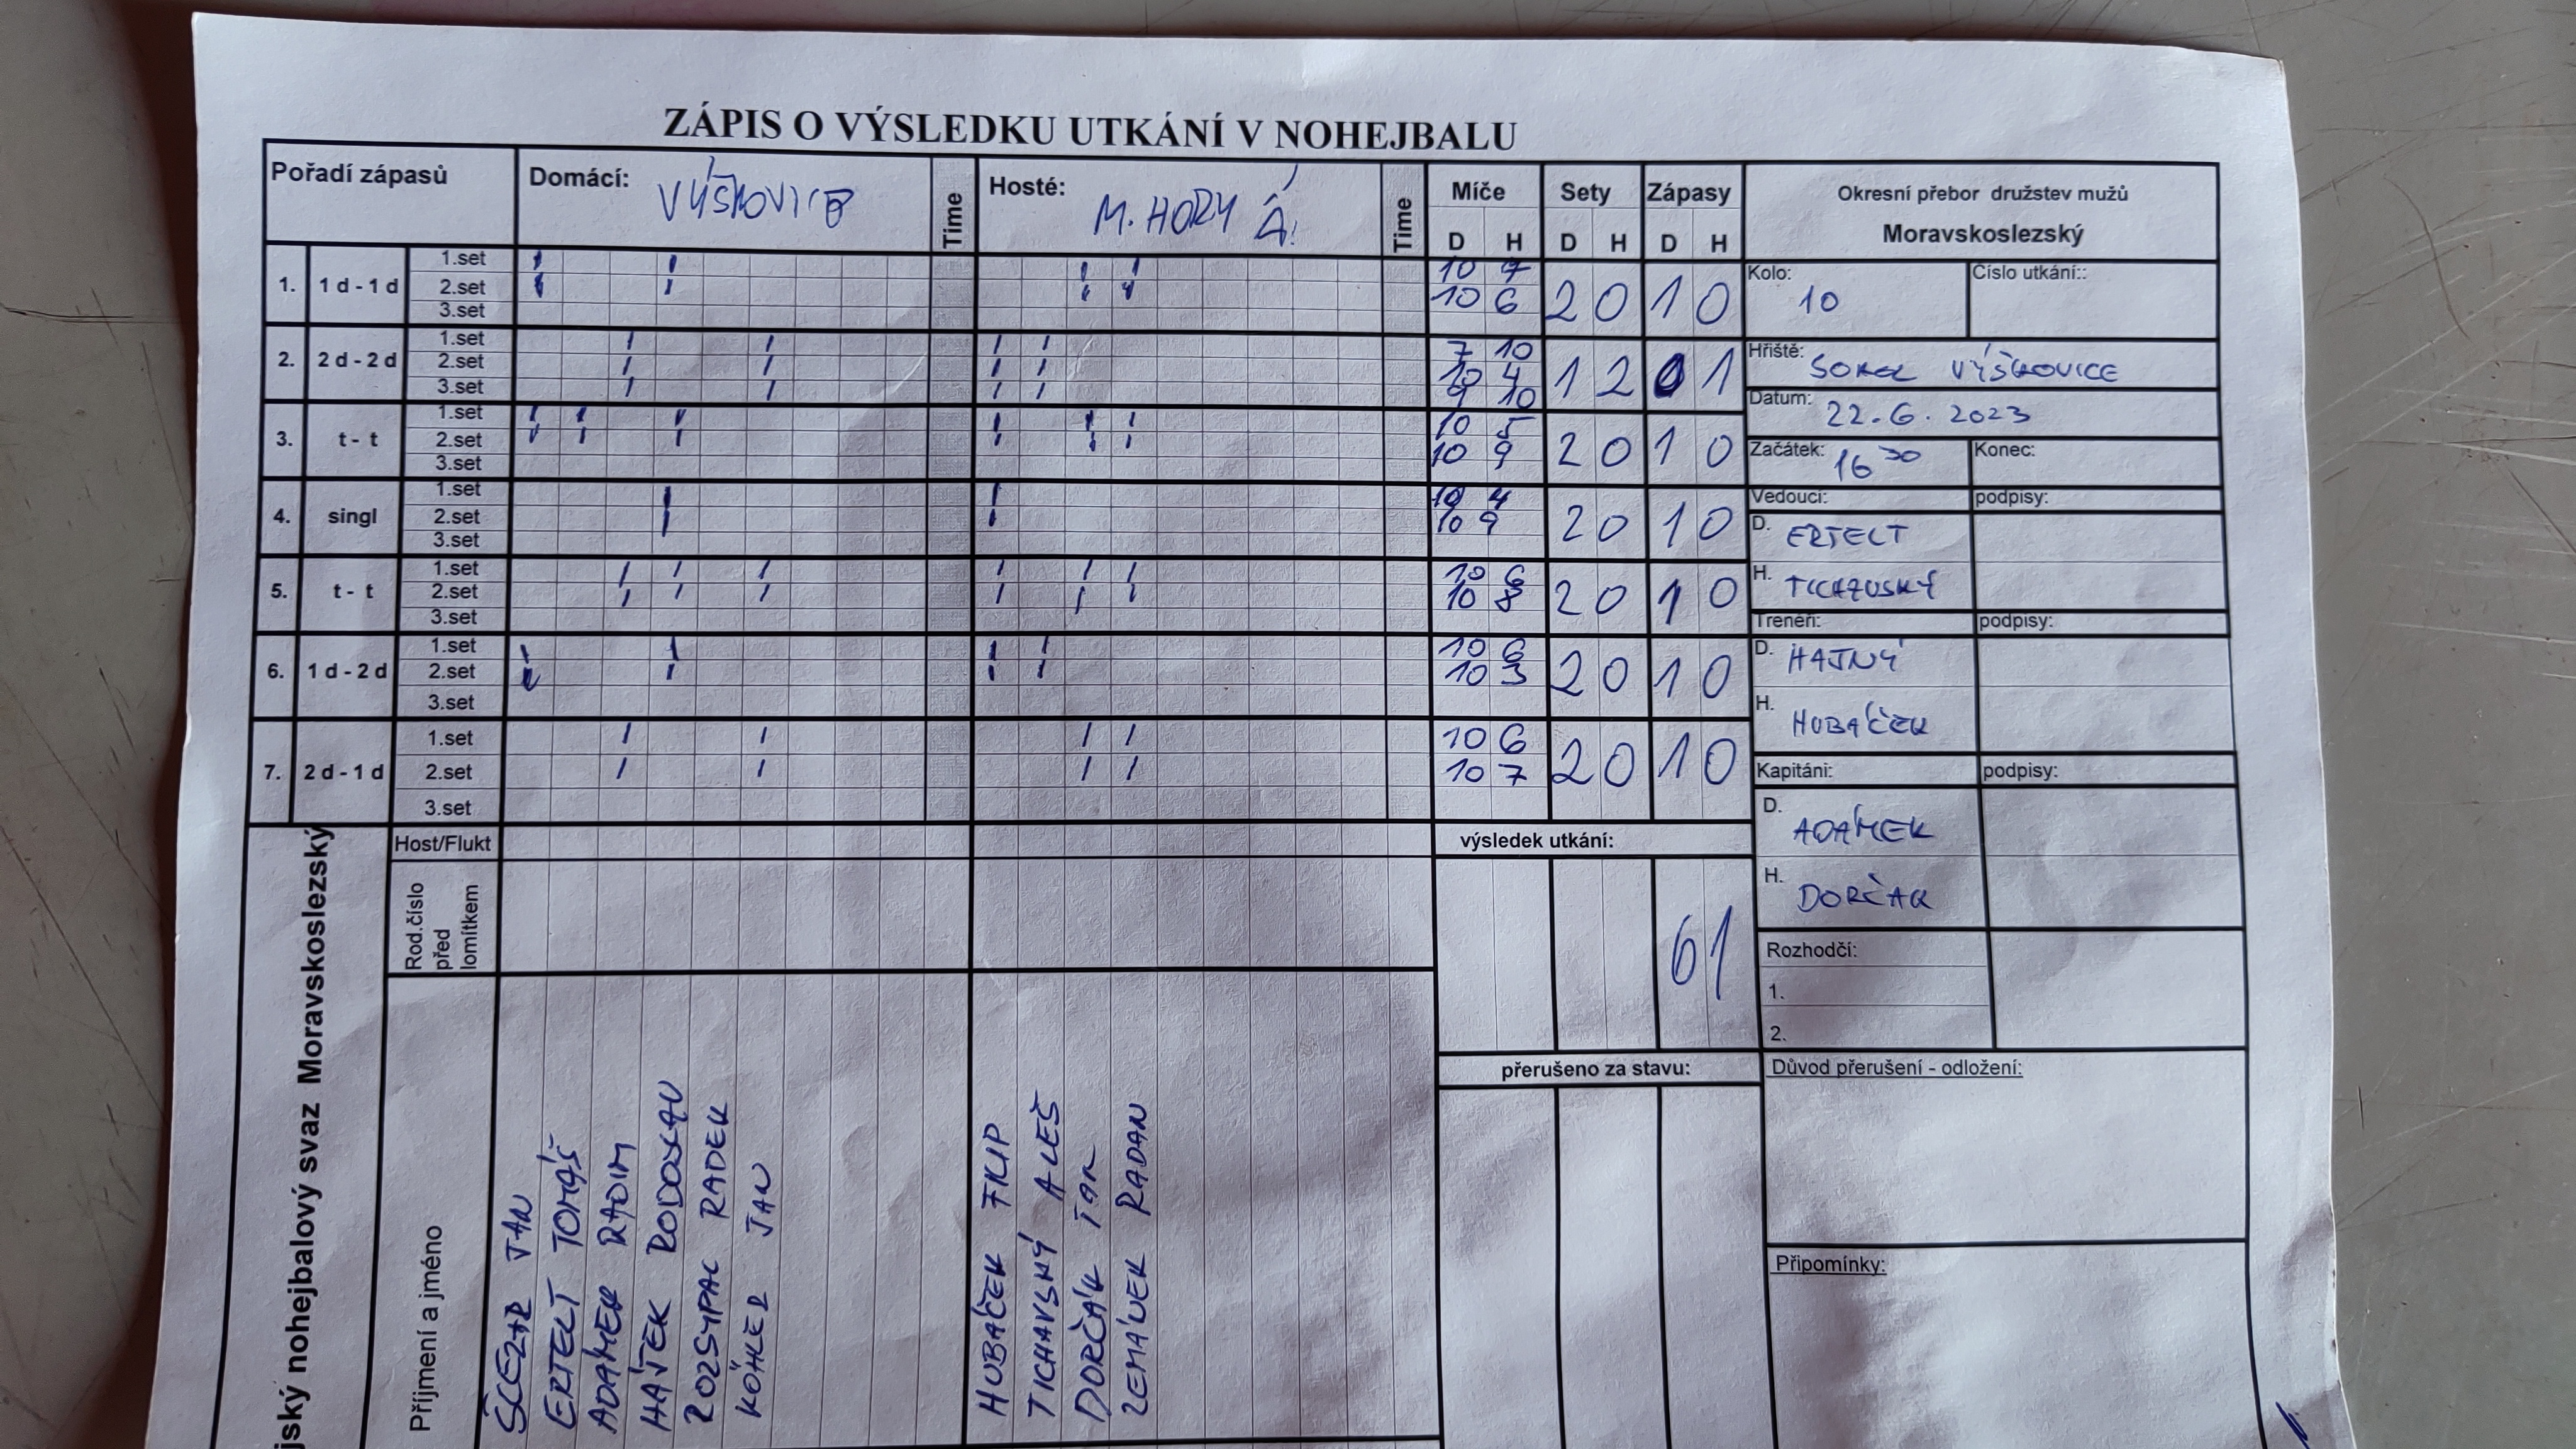 ZÁPIS O VÝSLEDKU UTKÁNÍ V NOHEJBALU
Pořadí zápasů Domácí: VÝŠKOVICE Time Hosté: M. HORY A Time Míče Sety Zápasy
D H D H D H
Okresní přebor družstev mužů
Moravskoslezský
1. 1 d - 1 d 1.set 10 7
2.set 10 6 2 0 1 0
3.set
Kolo: 10 Číslo utkání::
2. 2 d - 2 d 1.set 7 10
2.set 10 4 1 2 0 1
3.set 9 10
Hřiště: SOKOL VÝŠKOVICE
Datum: 22.6.2023
3. t - t 1.set 10 5
2.set 10 9 2 0 1 0
3.set
Začátek: 16 30 Konec:
4. singl 1.set 10 4
2.set 10 9 2 0 1 0
3.set
Vedoucí: podpisy:
D. ERTELT
5. t - t 1.set 10 6
2.set 10 8 2 0 1 0
3.set
H.
Trenéři: podpisy:
6. 1 d - 2 d 1.set 10 6
2.set 10 3 2 0 1 0
3.set
D. HAJNÝ
H. HUBÁČEK
7. 2 d - 1 d 1.set 10 6
2.set 10 7 2 0 1 0
3.set
Kapitáni: podpisy:
D. ADÁMEK
H. DORČÁK
Host/Flukt
výsledek utkání:
6 1
Rod.číslo
před
lomítkem
Rozhodčí:
1.
2.
přerušeno za stavu:
Důvod přerušení - odložení:
Připomínky:
jský nohejbalový svaz Moravskoslezský
Příjmení a jméno
JAN
ERTELT TOMÁŠ
ADÁMEK RADIM
HÁJEK
ROZSYPAL RADEK
KÖHLER JAN
HUBÁČEK FILIP
TICHAVSKÝ ALEŠ
DORČÁK
ZEMÁNEK RADAN